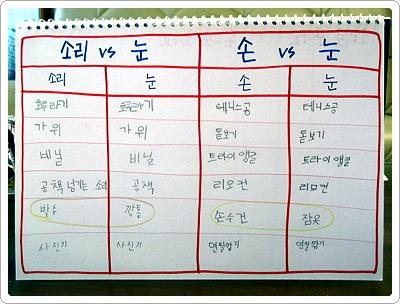 소리 vs 눈 손 vs 눈
소리 눈 손 눈
호루라기 호루라기 테니스공 테니스공
가위 가위 돋보기 돋보기
비닐 비닐 트라이앵글 트라이앵글
공책 넘기는 소리 공책 리모컨 리모컨
박수 깡통 손수건 잠옷
사진기 사진기 연필깎기 연필깎기